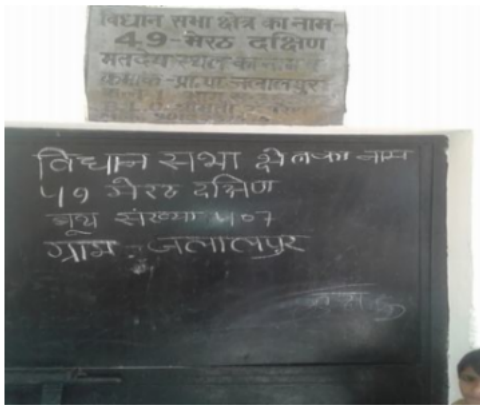 विधान सभा क्षेत्र का नाम-
49-मेरठ दक्षिण
मतदेय स्थल का नाम व
क्रमांक-प्रा.पा.जलालपुर
विधान सभा क्षेत्र का नाम
४९ मेरठ दक्षिण
बूथ संख्या ४०७
ग्राम : जलालपुर